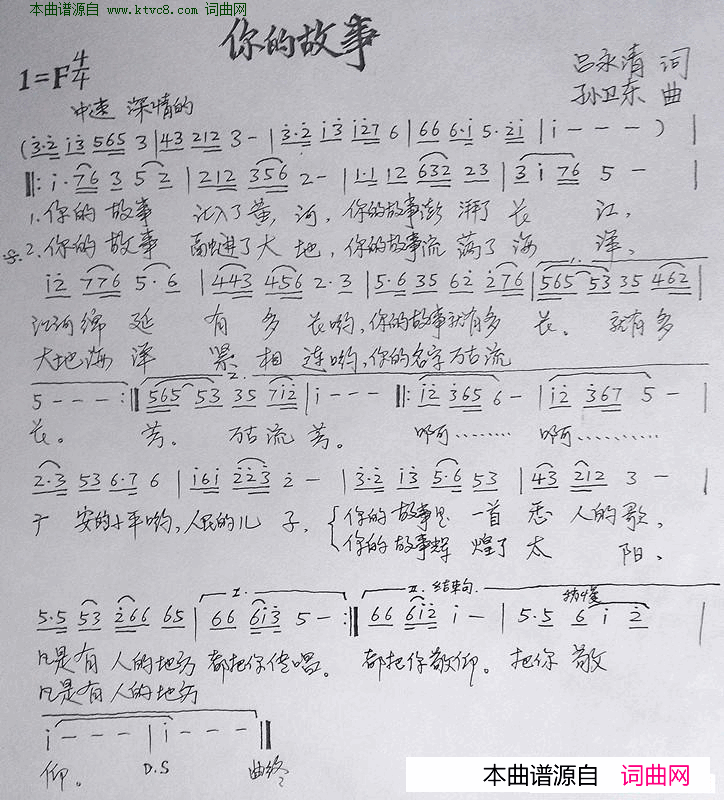 本曲谱源自 www.ktvc8.com 词曲网
你的故事
1=F 4/4
吕永清 词
孙卫东 曲
中速 深情的
(3·2 i3 565 3 | 43 212 3 - | 3·2 i3 i27 6 | 66 6·i 5·2i | i - - - ) |
‖: i·76 3 5 2 | 212 356 2 - | 1·1 12 632 23 | 3 i 76 5 - |
1.你的 故事 汇入了黄河,你的故事澎湃了长江,
2.你的 故事 融进了大地,你的故事流荡了海洋,
i2 776 5·6 | 443 456 2·3 | 5·6 35 62 276 | 565 53 35 462 |
江河绵延 有多长哟,你的故事就有多长。就有多
大地海洋 紧相连哟,你的名字万古流
5 - - - :‖ 565 53 35 7i2 | i - - - ‖: i2 365 6 - | i2 367 5 - |
长。 芳。 万古流芳。 啊……… 啊…………
2·3 53 6·7 6 | i6i 223 2 - | 3·2 i3 5·6 53 | 43 212 3 - |
安的 哟,人民的儿子,你的故事是一首 人的歌,
你的故事辉煌了太阳,
5·5 53 266 65 | I. 66 6i3 5 - :‖ II. 结束句 66 6i2 i - | 5·5 6 i 2 |
凡是有人的地方 都把你传唱。 都把你敬仰。把你敬
凡是有人的地方
i - - - | i - - - ‖
仰。 D.S 曲终
本曲谱源自 词曲网